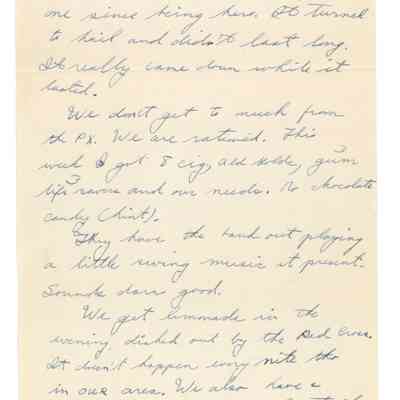 one since being here. It turned
to hail and didn't last long.
It really came down while it
lasted.
We don't get to much from
the PX. We are rationed. This
week I got 8 cig, old golds, 3 gum
3 life savers and our needs. No chocolate
candy (hint).
They have the band out playing
a little swing music at present.
Sounds darn good.
We get lemonade in the
evening, dished out by the Red Cross.
It doesn't happen every nite tho
in our area. We also have a